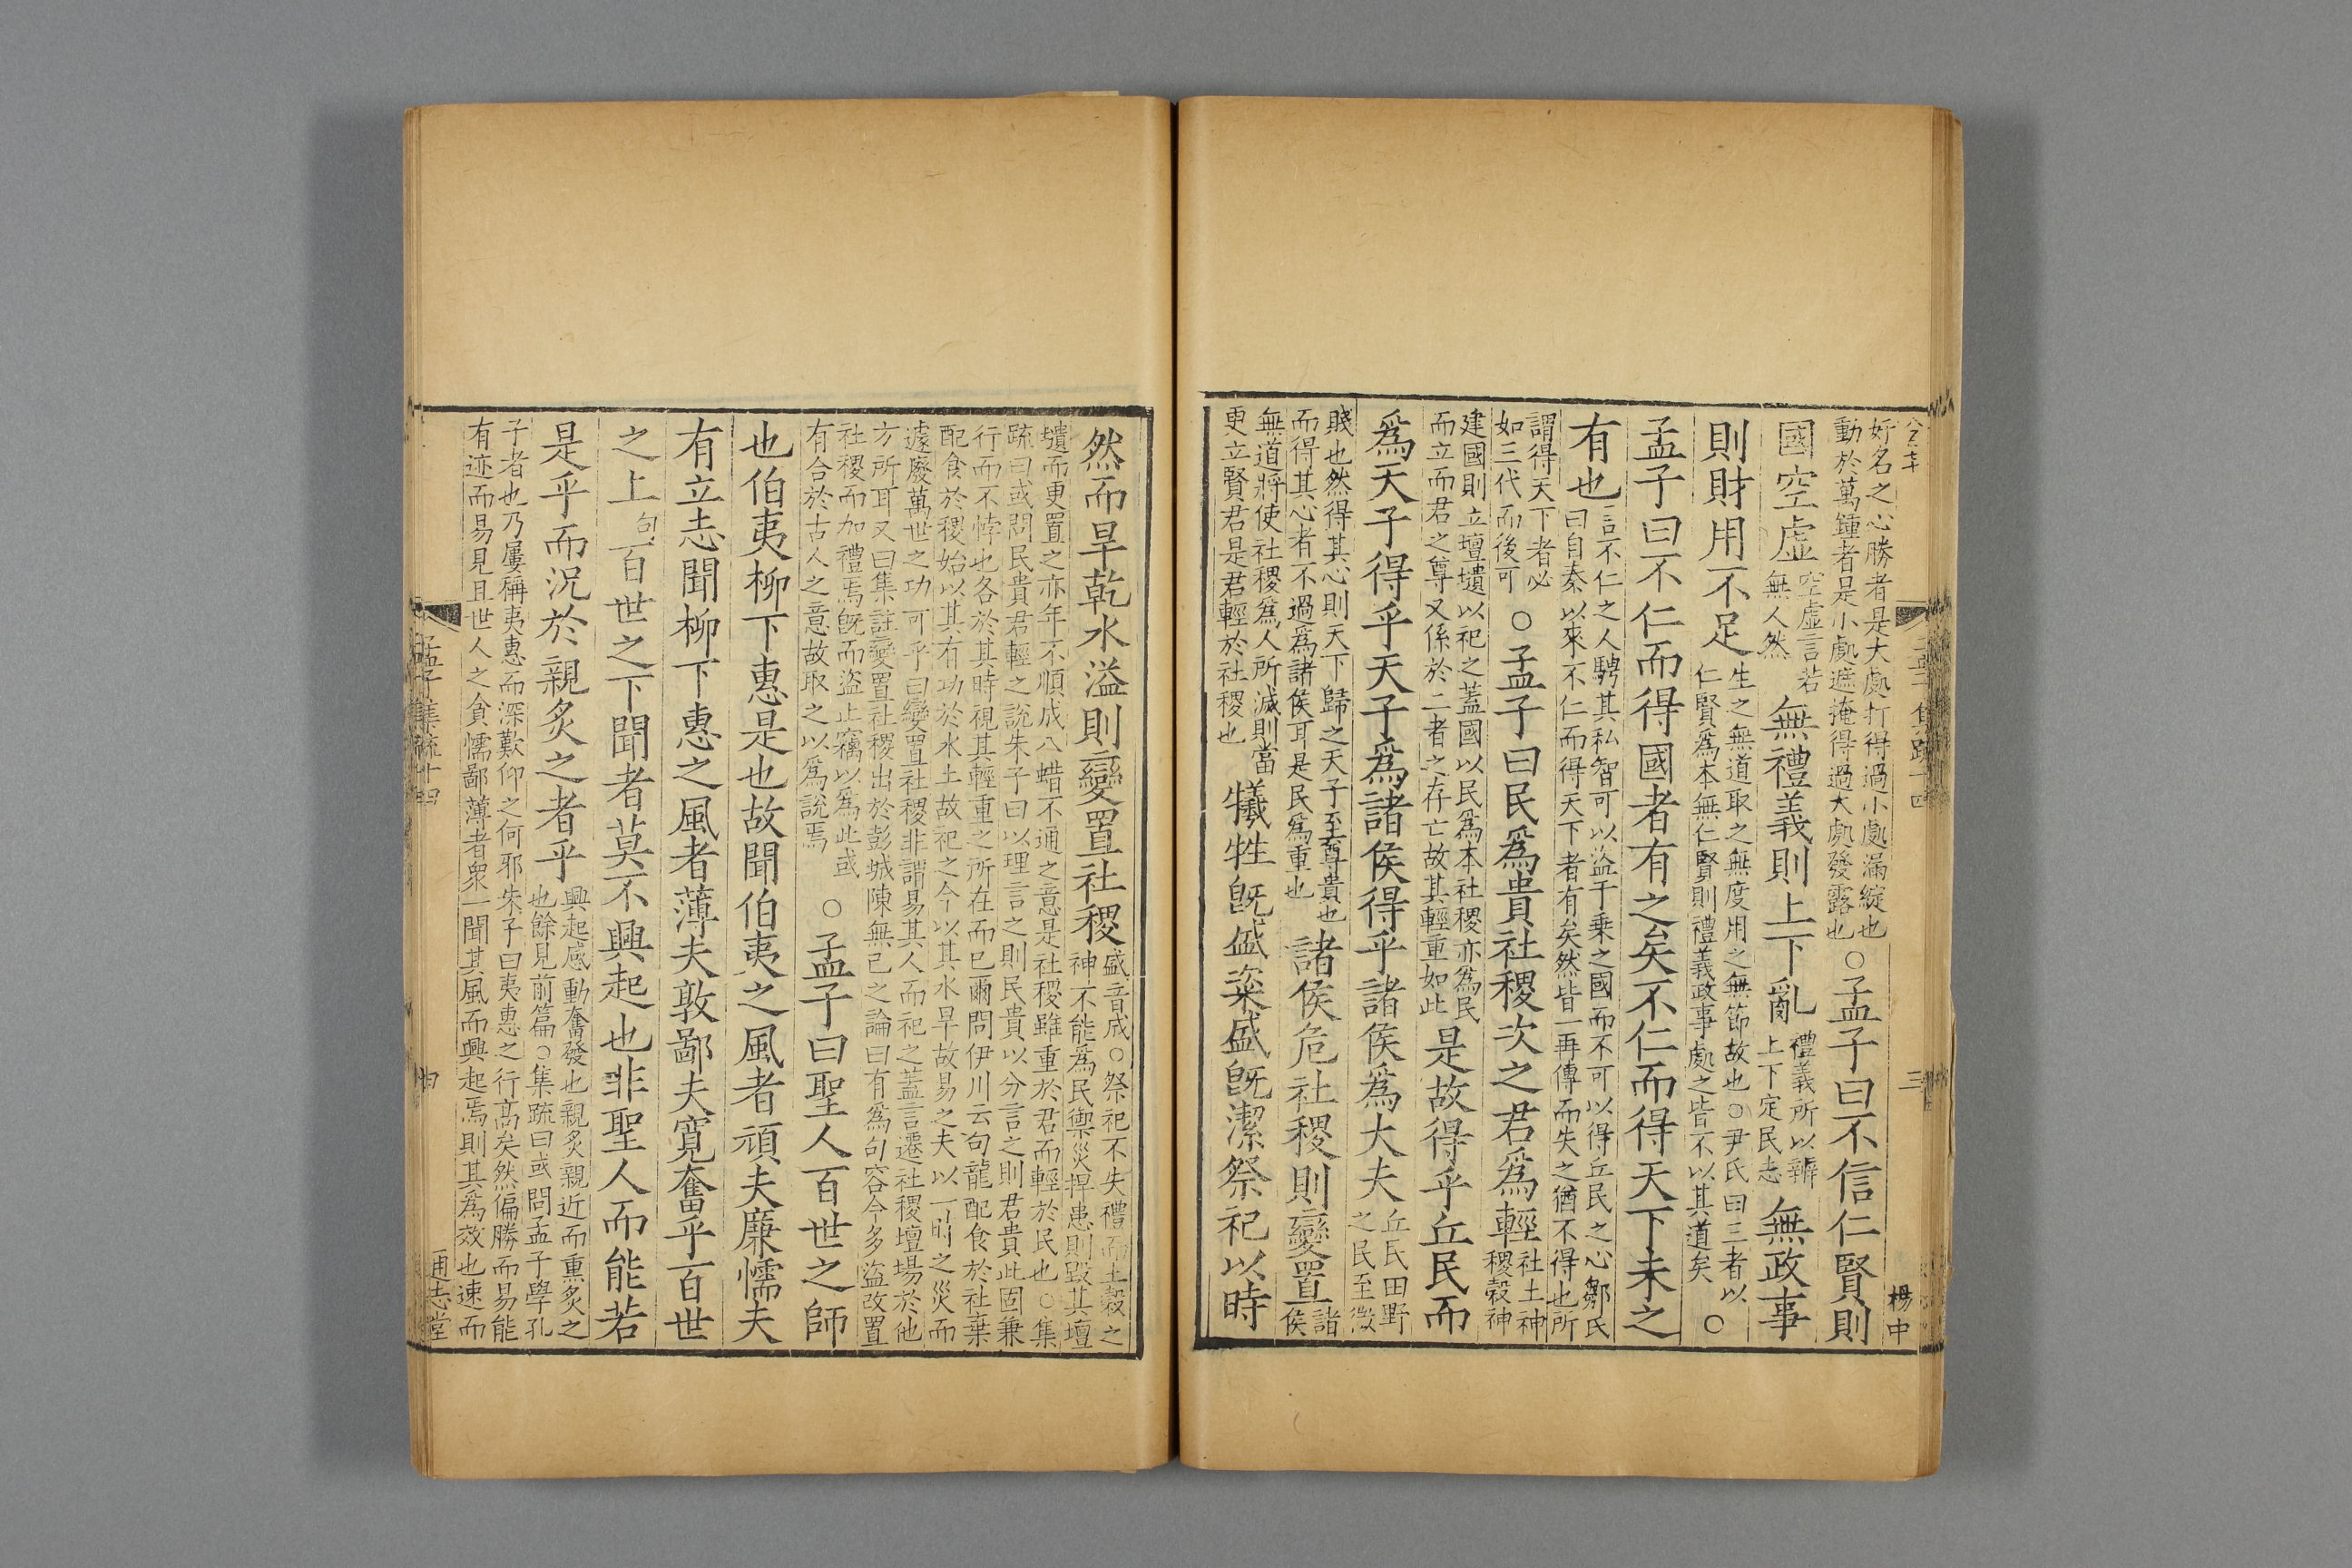 好名之心勝者是大處打得過小處漏綻也
動於萬鍾者是小處遮掩得過大處發露也○孟子曰不信仁賢則
國空虛空虛言若
無人然無禮義則上下亂禮義所以辨
上下定民志無政事
則財用不足生之無道取之無度用之無節故也○尹氏曰三者以
仁賢爲本無仁賢則禮義政事處之皆不以其道矣○
孟子曰不仁而得國者有之矣不仁而得天下未之
有也言不仁之人騁其私智可以盜千乗之國而不可以得丘民之心鄒氏
曰自秦以來不仁而得天下者有矣然皆一再傳而失之猶不得也所
謂得天下者必
如三代而後可○孟子曰民爲貴社稷次之君爲輕社土神
稷穀神
建國則立壇壝以祀之蓋國以民爲本社稷亦爲民
而立而君之尊又係於二者之存亡故其輕重如此是故得乎丘民而
爲天子得乎天子爲諸侯得乎諸侯爲大夫丘民田野
之民至微
賤也然得其心則天下歸之天子至尊貴也
而得其心者不過爲諸侯耳是民爲重也諸侯危社稷則變置諸
侯
無道將使社稷爲人所滅則當
更立賢君是君輕於社稷也犧牲旣盛粢盛旣潔祭祀以時
三
楊中
然而旱乾水溢則變置社稷盛音成○祭祀不失禮而土穀之
神不能爲民禦災捍患則毀其壇
壝而更置之亦年不順成八蜡不通之意是社稷雖重於君而輕於民也○集
疏曰或問民貴君輕之說朱子曰以理言之則民貴以分言之則君貴此固兼
行而不悖也各於其時視其輕重之所在而已爾問伊川云句龍配食於社棄
配食於稷始以其有功於水土故祀之今以其水旱故易之夫以一時之災而
遽廢萬世之功可乎曰變置社稷非謂易其人而祀之蓋言遷社稷壇場於他
方所耳又曰集註變置社稷出於彭城陳無己之論曰有爲句容令多盜改置
社稷而加禮焉旣而盜止竊以爲此或
有合於古人之意故取之以爲說焉○孟子曰聖人百世之師
也伯夷柳下惠是也故聞伯夷之風者頑夫廉懦夫
有立志聞柳下惠之風者薄夫敦鄙夫寬奮乎百世
之上句百世之下聞者莫不興起也非聖人而能若
是乎而況於親炙之者乎興起感動奮發也親炙親近而熏炙之
也餘見前篇○集疏曰或問孟子學孔
子者也乃屢稱夷惠而深歎仰之何邪朱子曰夷惠之行高矣然偏勝而易能
有迹而易見且世人之貪懦鄙薄者衆一聞其風而興起焉則其爲效也速而
孟子集疏十四
通志堂